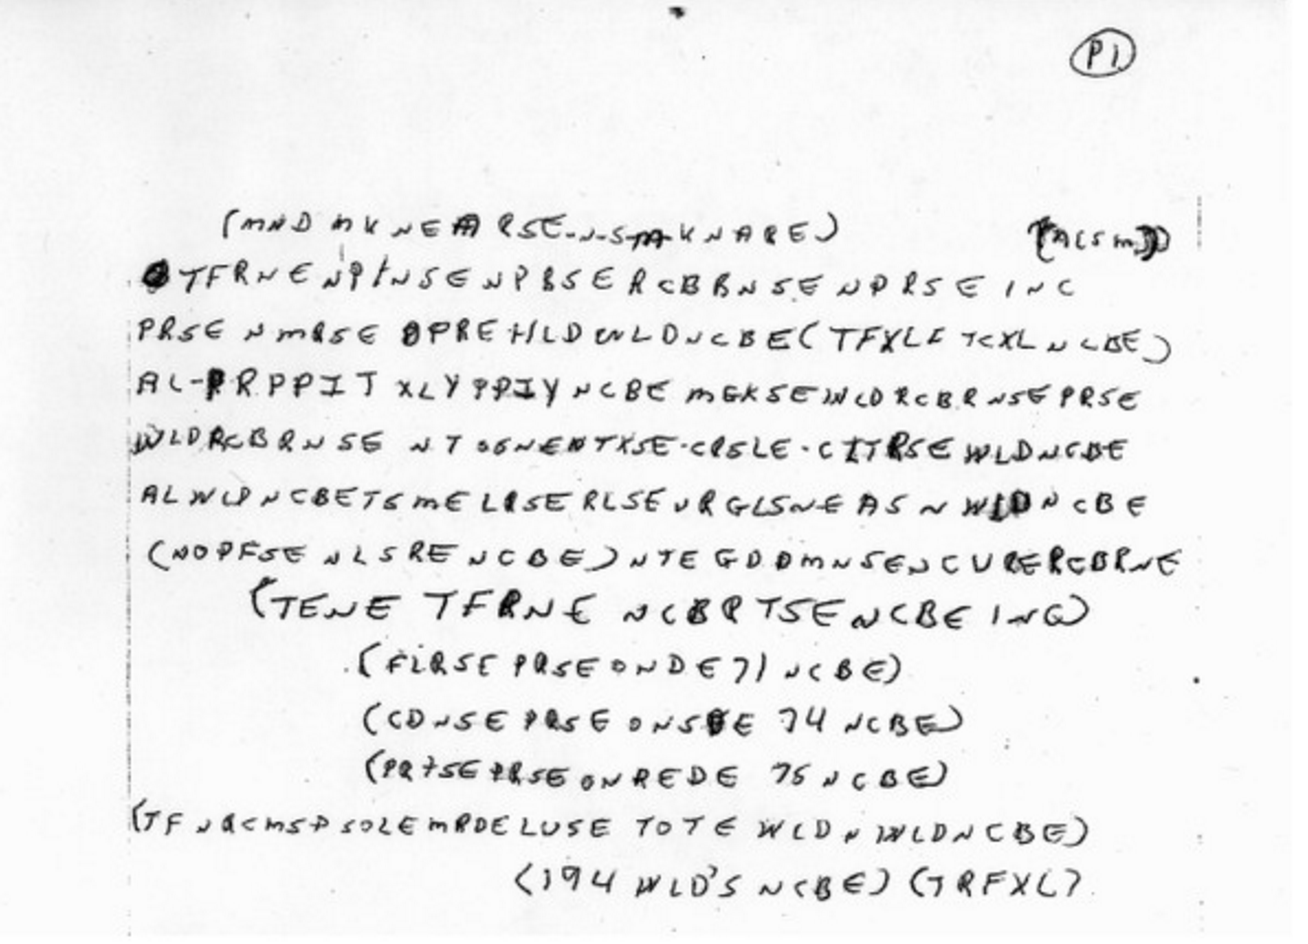 P1
(MND MKNEARSE-N-S-M-KNARE) (ACSM)
TFRNE NPINSENPBSERCBBNSENPRSEINC
PRSE NMRSE OPREHLDWLDNCBE(TFXLF TCXL NCBE)
AL-PRPPIT XLYPPIY NCBE MGKSEINCDRCBRNSEPRSE
WLDRCBRNSE NTSGNENTXSE-CRSLE-CITRSE WLDNCBE
ALWLPNCBETSMELRSERLSEURGLSNEASNWLDNCBE
(NOPFSE NLSRE NCBE) NTEGDDMNSENCURERCBRNE
(TENE TFRNE NCBRTSENCBE INC)
(FLRSE PRSEONDE71 NCBE)
(CDNSE PRSEONSDE 74 NCBE)
(PRTSE PRSEONREDE 75 NCBE)
(TFNQCMSP SOLEMRDELUSE TOTE WLDN WLDNCBE)
(194 WLD'S NCBE) (TRFXL)